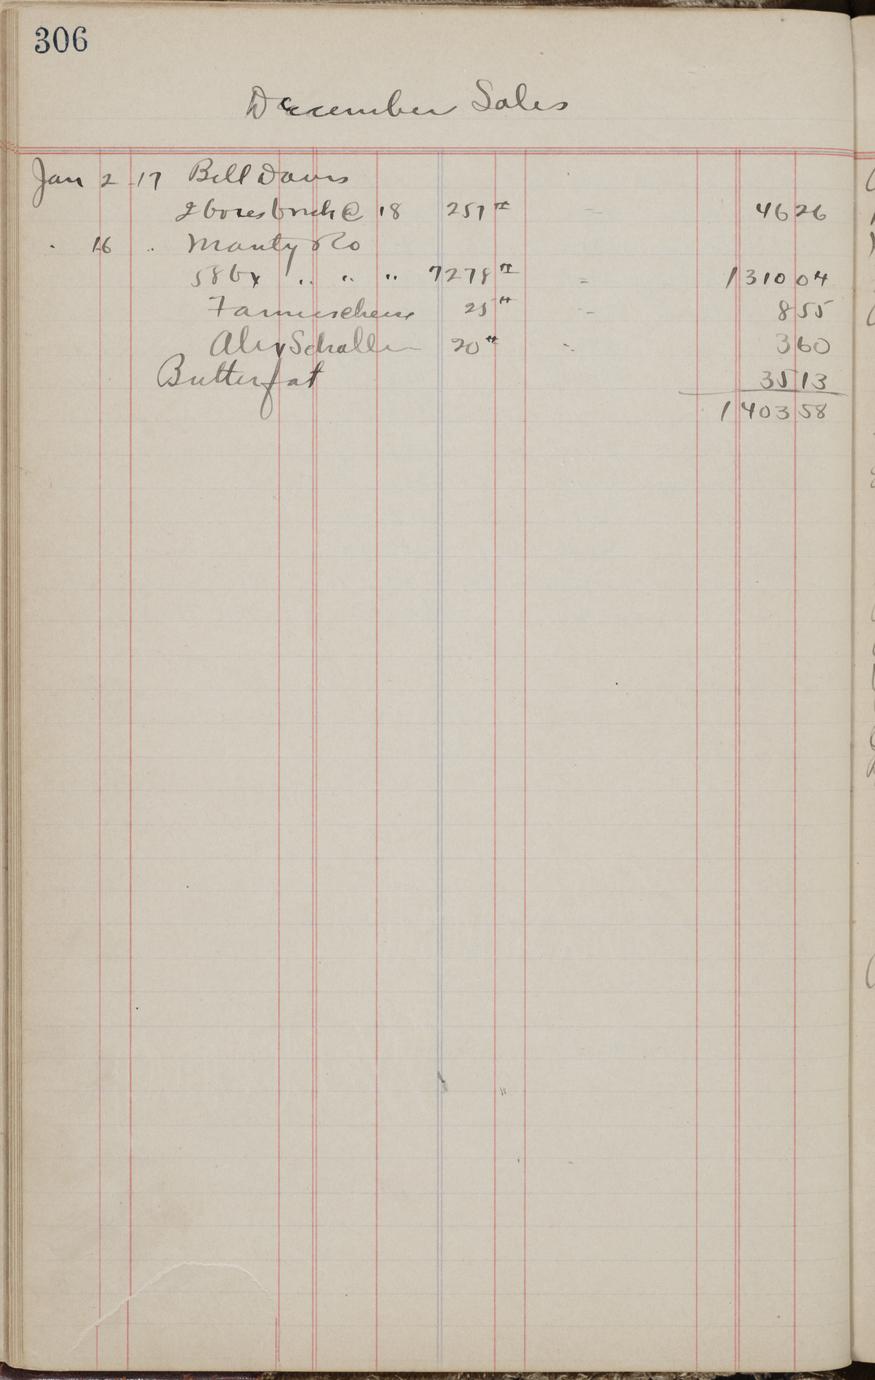 306
December Sales
Jan 2 17 Bill Davis
2 boxes brick @ 18 257 # - 46 26
" 16 " Manty & Co
58 bx " " " 7278 # = 1310 04
25 # - 8 55
Alex Schaller 20 # - 3 60
Butterfat 35 13
1403 58